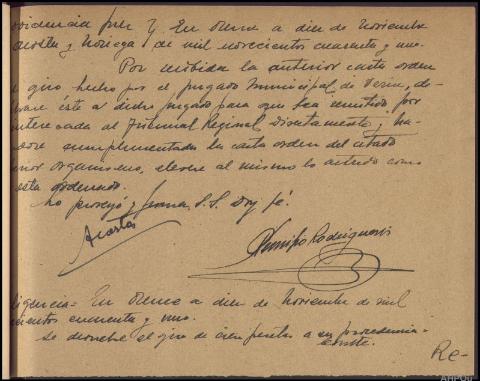 ovidencia Juez } En Orense a diez de Noviembre
Acosta y Noriega } de mil novecientos cuarenta y uno.
Por recibida la anterior carta orden
y giro hecho por el Juzgado Municipal de Verin, de-
vuelvase éste a dicho Juzgado para que sea remitido por
interesada al Tribunal Regional directamente; y ha-
cumplimentada la carta orden del citado
mor organismo, elevese al mismo lo actuado como
esta ordenado.
Lo proveyó y firma S.S. Doy fé.
Acosta
Rodriguez
ligencia = En Orense a diez de Noviembre de mil
ecientos cuarenta y uno.
Se devuelve el giro de cien pesetas a su procedencia
Re-
AHPOu